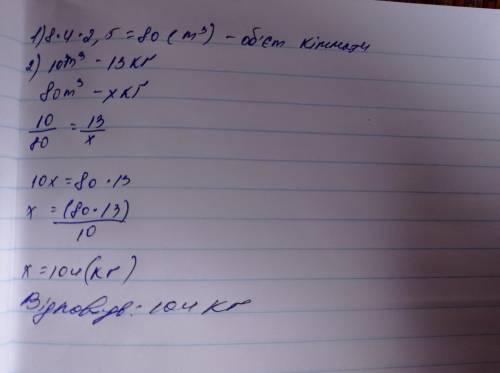 1) 8·4·2,5=80(m³) - об'єт кімнати
2) 10m³ - 13 кг
80m³ - x кг
10/80 = 13/x
10x = 80·13
x = (80·13)/10
x = 104 (кг)
Відповідь: 104 кг